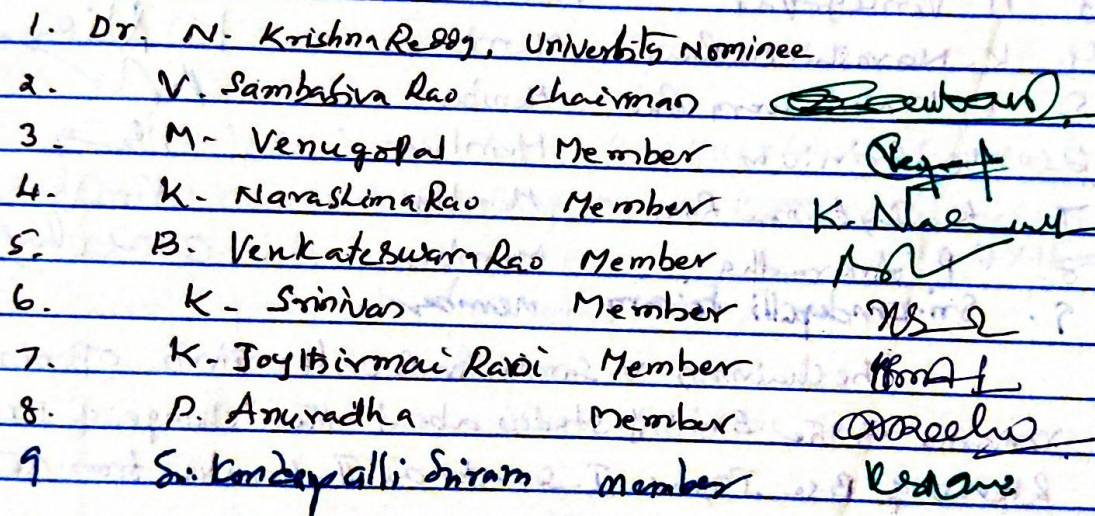 1. Dr. N. Krishna Reddy, University Nominee
2. V. Sambasiva Rao Chairman
3. M. Venugopal Member
4. K. Narashima Rao Member K.
5. B. Venkateswara Rao Member
6. K. Srinivas Member
7. K. Joylthirmai Rani Member
8. P. Anuradha Member
9 Sri. Kondepalli Sriram member